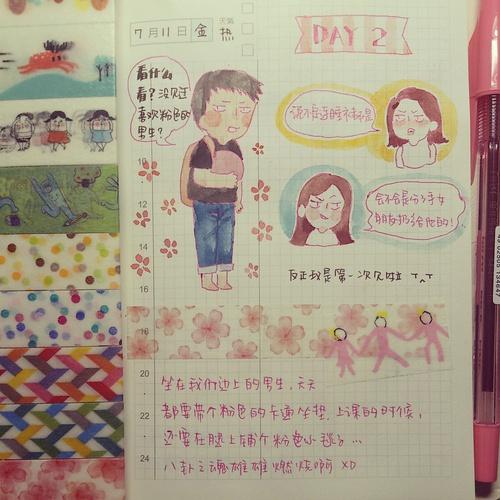 7月11日 金 天氣 热
DAY 2
看什么
看？没见过
喜欢粉色的
男生？
说不定这
会不会是分手女
朋友扔给他的！
反正我是第一次见啦 T^T
16
18
20
22
24
坐在我们边上的男生，天天
都要带个粉色的卡通坐垫，上课的时候，
还要在腿上铺个粉色小毯子…
八卦之魂雄雄燃烧啊 XD